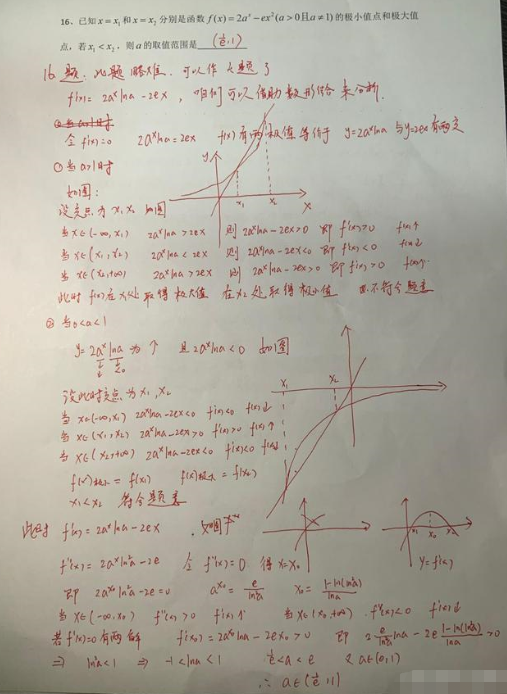 16、已知 x = x₁ 和 x = x₂ 分别是函数 f(x) = 2aˣ − ex² (a > 0 且 a ≠ 1) 的极小值点和极大值
点，若 x₁ < x₂，则 a 的取值范围是 (1/e, 1)
16题、此题略难，可以作大题了
f'(x) = 2aˣlna − 2ex，咱们可以借助数形结合来分析.
② 当 a>1 时
令 f'(x)=0 2aˣlna = 2ex f(x)有两极值等价于 y=2aˣlna 与 y=2ex 有两交
① 当 a>1 时
如图：
y
x₁ x₂ x
设交点为 x₁ x₂ 如图
当 x∈(-∞, x₁) 2aˣlna > 2ex 则 2aˣlna − 2ex > 0 即 f'(x)>0 f(x)↑
当 x∈(x₁, x₂) 2aˣlna < 2ex 则 2aˣlna − 2ex < 0 即 f'(x)<0 f(x)↓
当 x∈(x₂, +∞) 2aˣlna > 2ex 则 2aˣlna − 2ex > 0 即 f'(x)>0 f(x)↑
此时 f(x)在 x₁处取得极大值 在 x₂处取得极小值 不符合题意
② 当 0<a<1
y = 2aˣlna 为↑ 且 2aˣlna < 0 如图
x₁ x₂
设此时交点为 x₁, x₂
当 x∈(-∞, x₁) 2aˣlna − 2ex < 0 f'(x)<0 f(x)↓
当 x∈(x₁, x₂) 2aˣlna − 2ex > 0 f'(x)>0 f(x)↑
当 x∈(x₂, +∞) 2aˣlna − 2ex < 0 f'(x)<0 f(x)↓
f(x)极小 = f(x₁) f(x)极大 = f(x₂)
x₁<x₂ 符合题意
此时 f'(x) = 2aˣlna − 2ex，如图
x₁ x₀ x₂
y=f'(x)
f''(x) = 2aˣln²a − 2e 令 f''(x)=0 得 x=x₀
即 2aˣ⁰ln²a − 2e = 0 aˣ⁰ = e/ln²a x₀ = (1−ln(ln²a))/lna
当 x∈(-∞, x₀) f''(x)>0 f'(x)↑ 当 x∈(x₀, +∞) f''(x)<0 f'(x)↓
若 f'(x)=0 有两解 f'(x₀) = 2aˣ⁰lna − 2ex₀ > 0 即 2·(e/ln²a)lna − 2e·(1−ln(ln²a))/lna > 0
⇒ ln²a < 1 ⇒ −1 < lna < 1 1/e < a < e 又 a∈(0,1)
∴ a∈(1/e, 1)